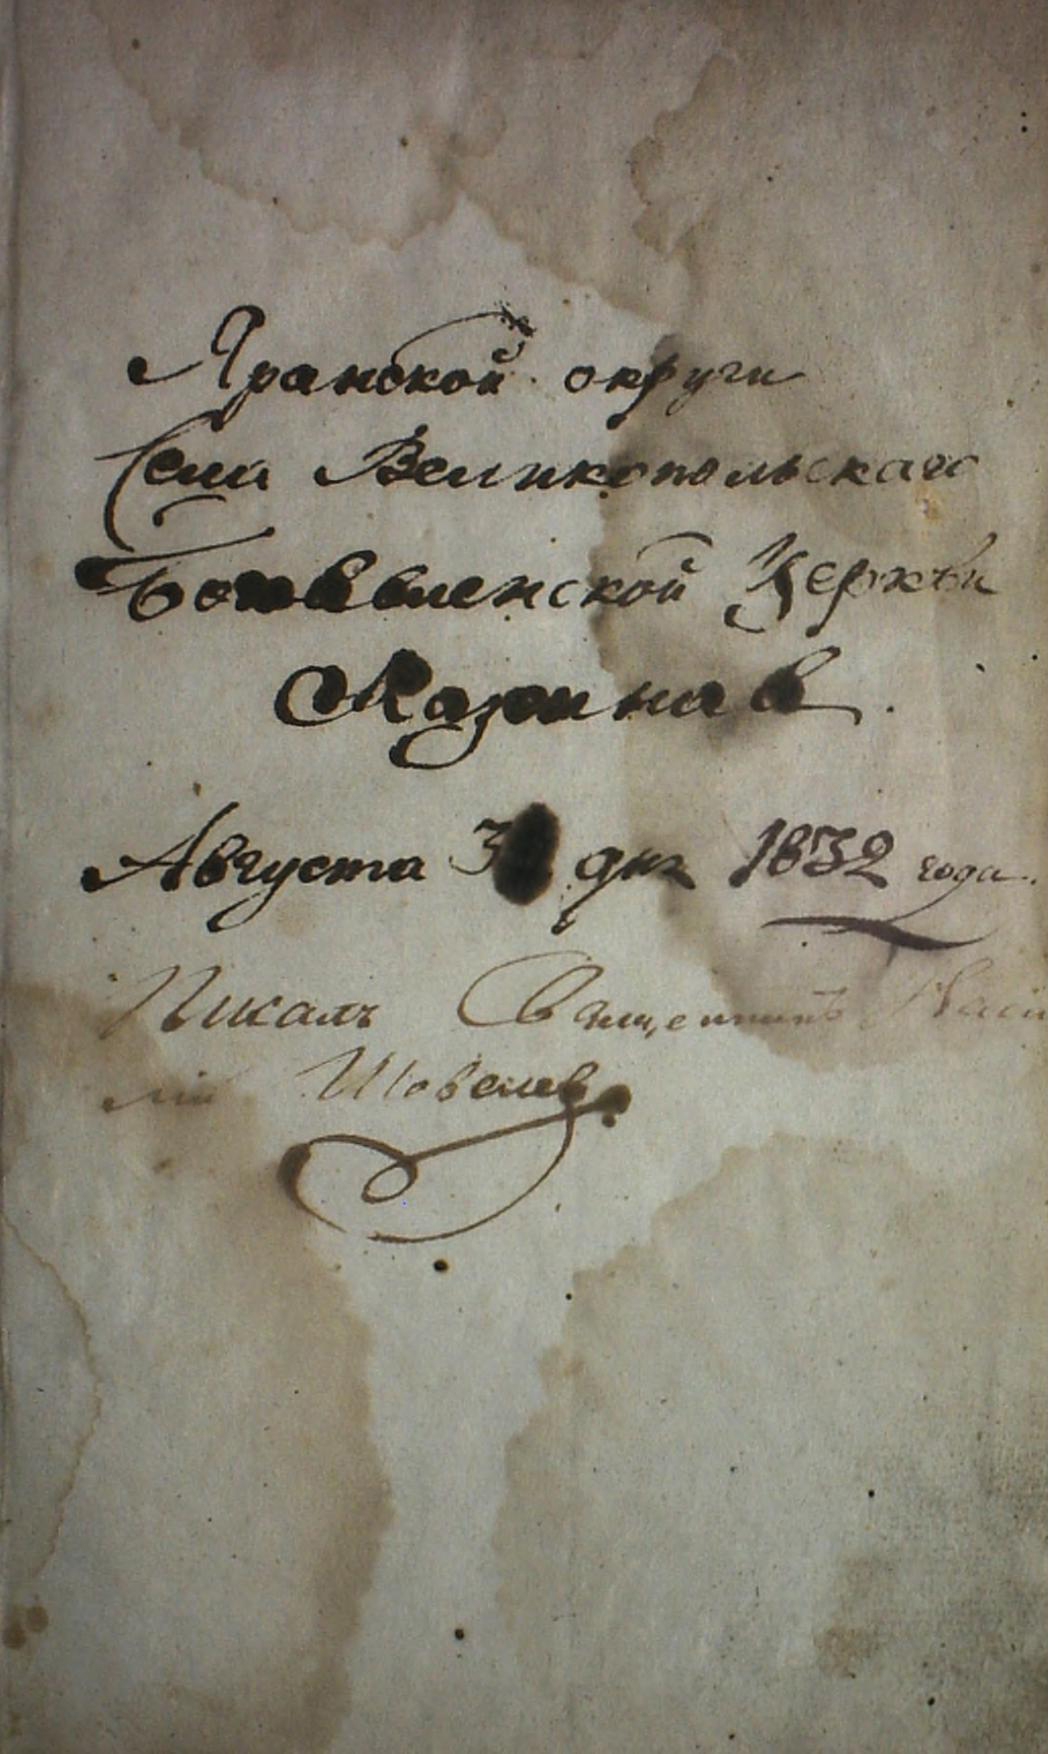 Яранской округи
Села Великопольскаго
Богоявленской Церкви
Августа 3 дня 1832 года.
Писалъ Священникъ Васи
лій Шовелев